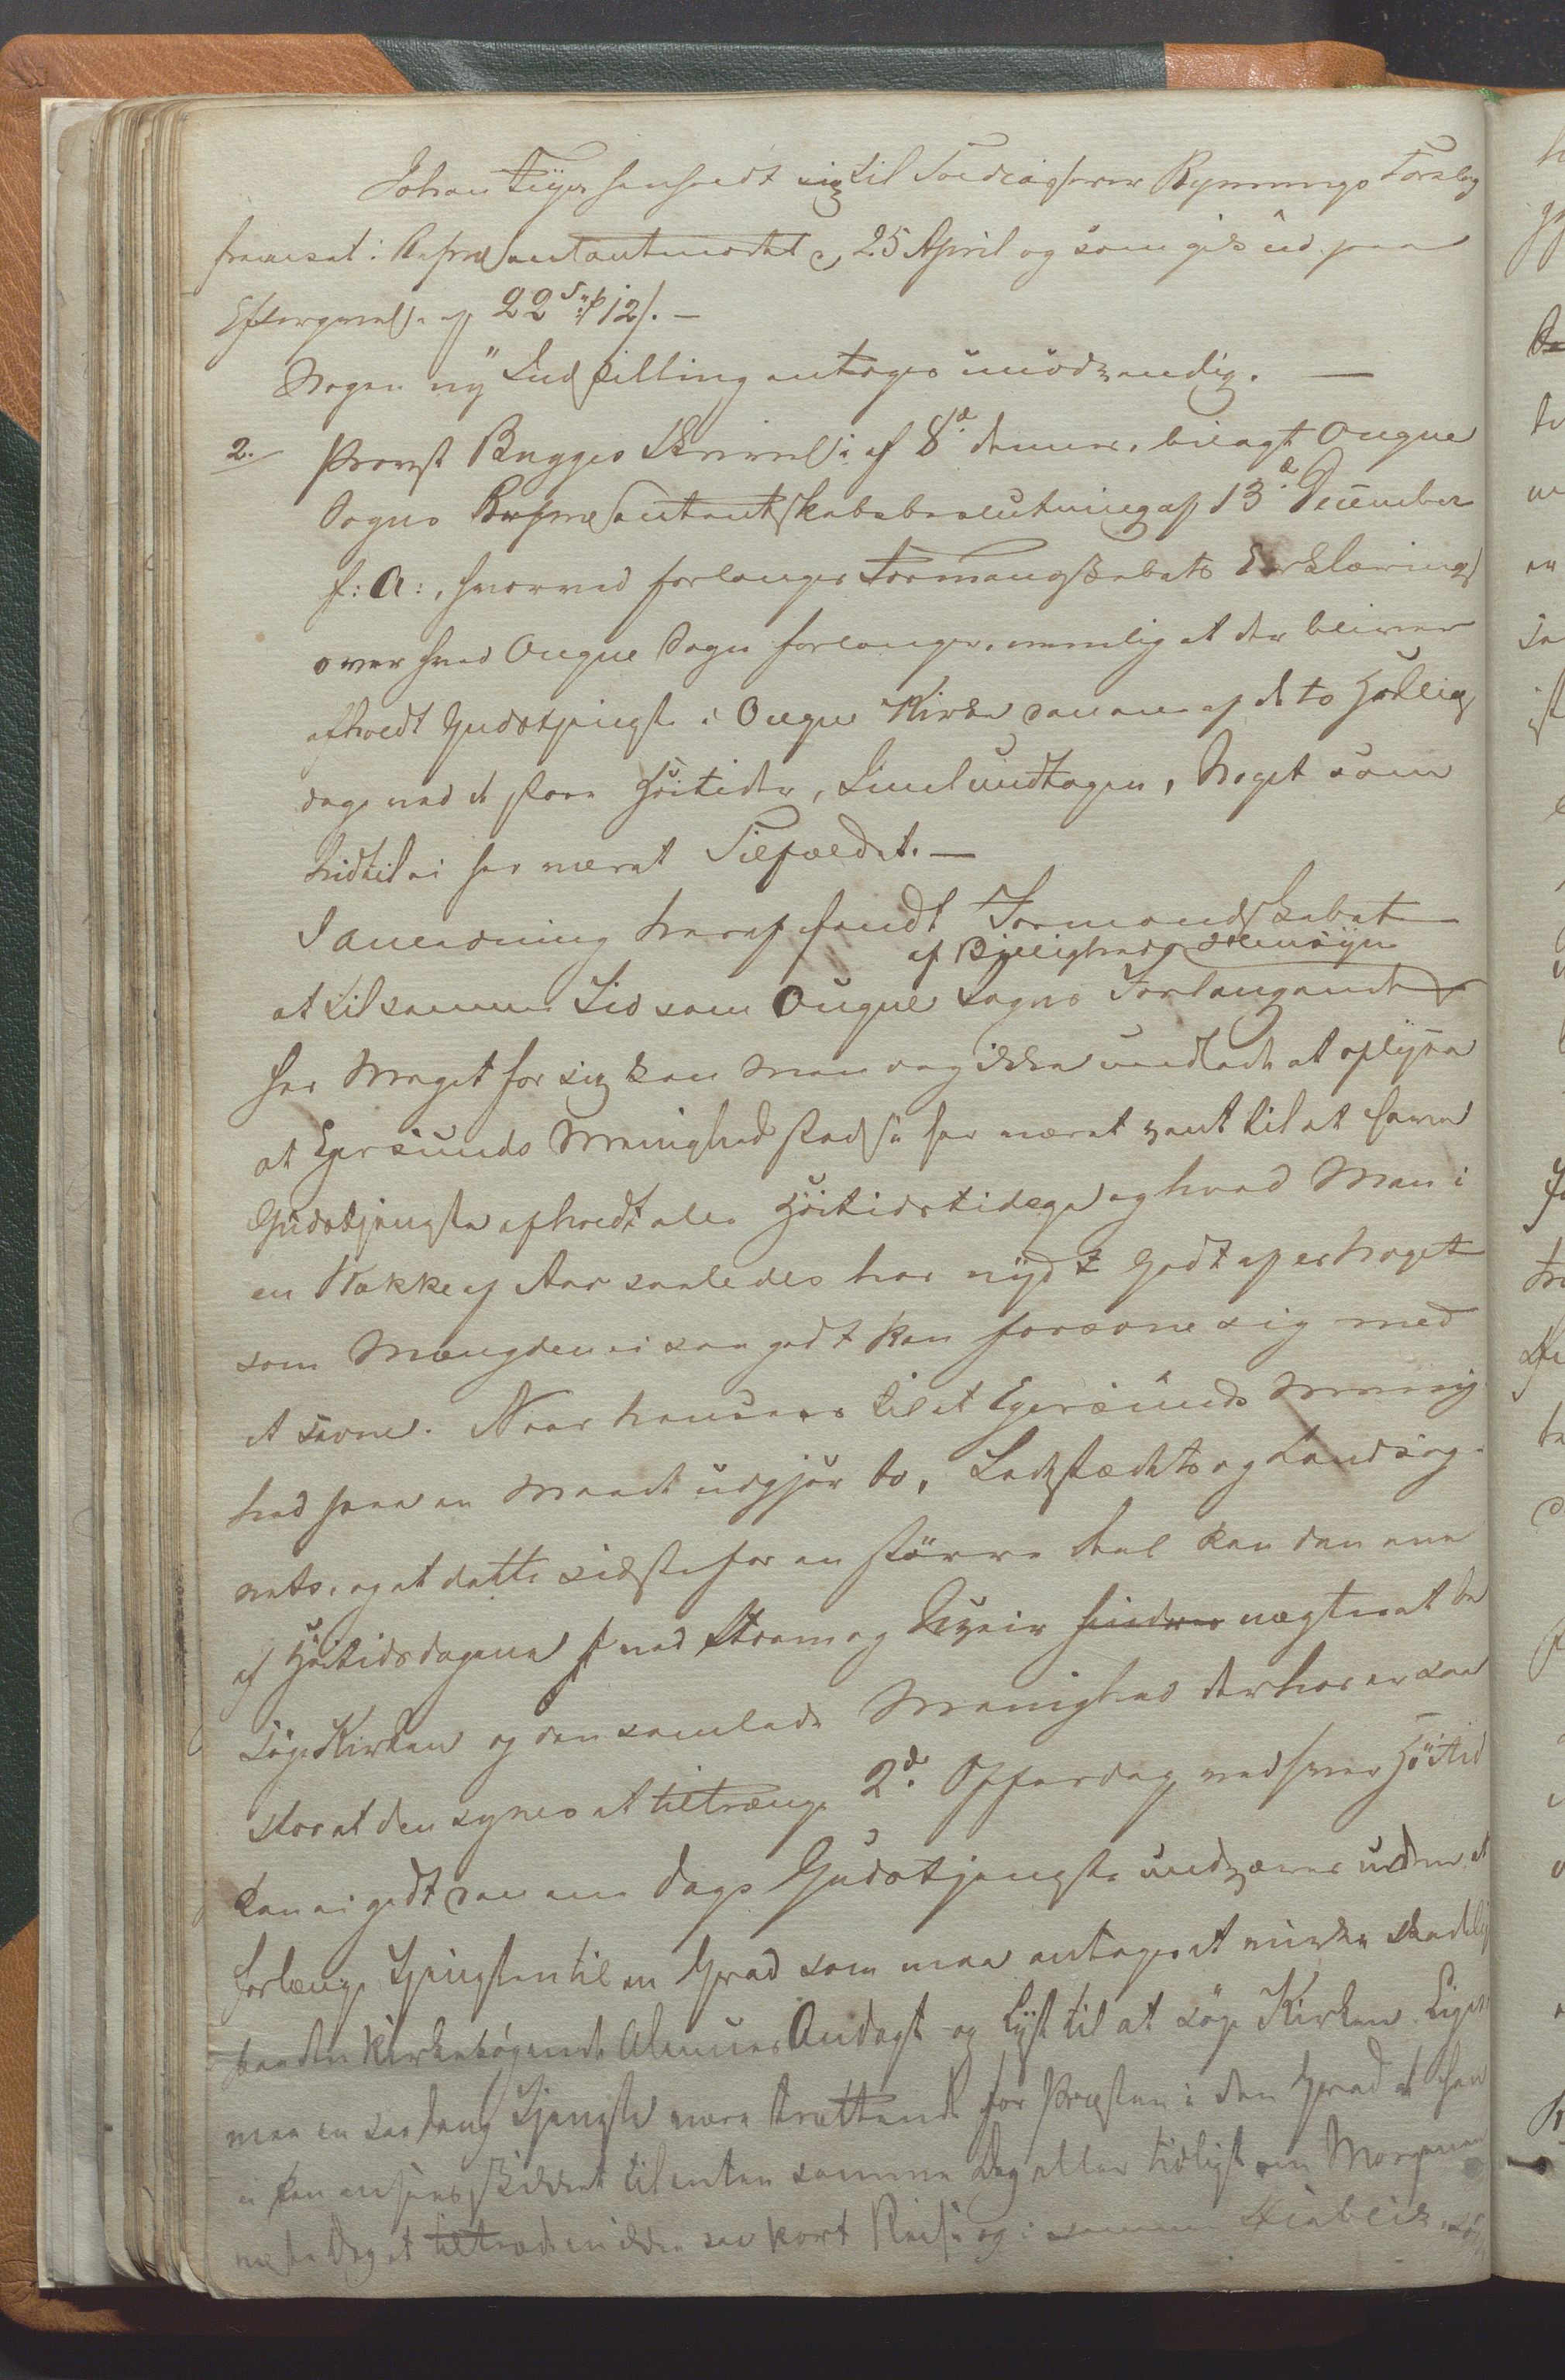 Johan Feyer henholdt sig til Foedragherer Rynnings Forslag
fremsat i Repræsentantmødet d. 25 April og som gik ud paa
Eftergivelse af 22 Sp 12 s. —
Nogen ny Indstilling antages unødvendig. —
2. Provst Bugges Skrivelse af 8de dennes, bilagt Ougne
Sogns Repræsentantskabsbeslutning af 13de December
f: A:, hvorved forlanges Formandskabets Erklæring
over hvad Ougne Sogn forlanger, nemlig at der bliver
afholdt Gudstjeneste i Ougne Kirke den ene af de to Hellig
dage ved de store Høitider, Juul undtagen, Noget som
hidtil ei har været Tilfældet. —
I anledning heraf fandt Formandskabet
af Billigheds Hensyn
at til samme Tid som Ougne Sogns Forlangende
har Meget for sig kan man dog ikke undlade at oplyse
at Egersunds Menighed stedse har været vant til at have
Gudstjeneste afholdt alle Høitidstidage og hvad Man i
en Række af Aar saaledes har nydt Godt af er Noget
som Mængden ei saa godt kan forsone sig med
at savne. Naar hensees til at Egersunds Menig
hed paa en Maade udgjør to, Ladestedets og Landsog-
nets, og at dette sidste for en større Deel kan den ene
af Høitidsdagene ved Storm og Uveir hindres nægtes at
søge Kirken og den samlede Menighed derhos er saa
stor at den synes at tiltrænge 2de Offerdag ved hver Høitid
kan ei godt den ene Dags Gudstjeneste undværes uden at
forlænge Tjenesten til en Grad som maa antages at virke skadelig
paa den Kirkesøgende Almues Andagt og Lyst til at søge Kirken. Ligesom
maa en saa lang Tjeneste være trættende for Præsten i den Grad at han
ei kan ansees skikket til enten samme Dag eller tidligst om Morgenen
næste Dag at tiltræde en ikke saa kort Reise og i samme Øieblik